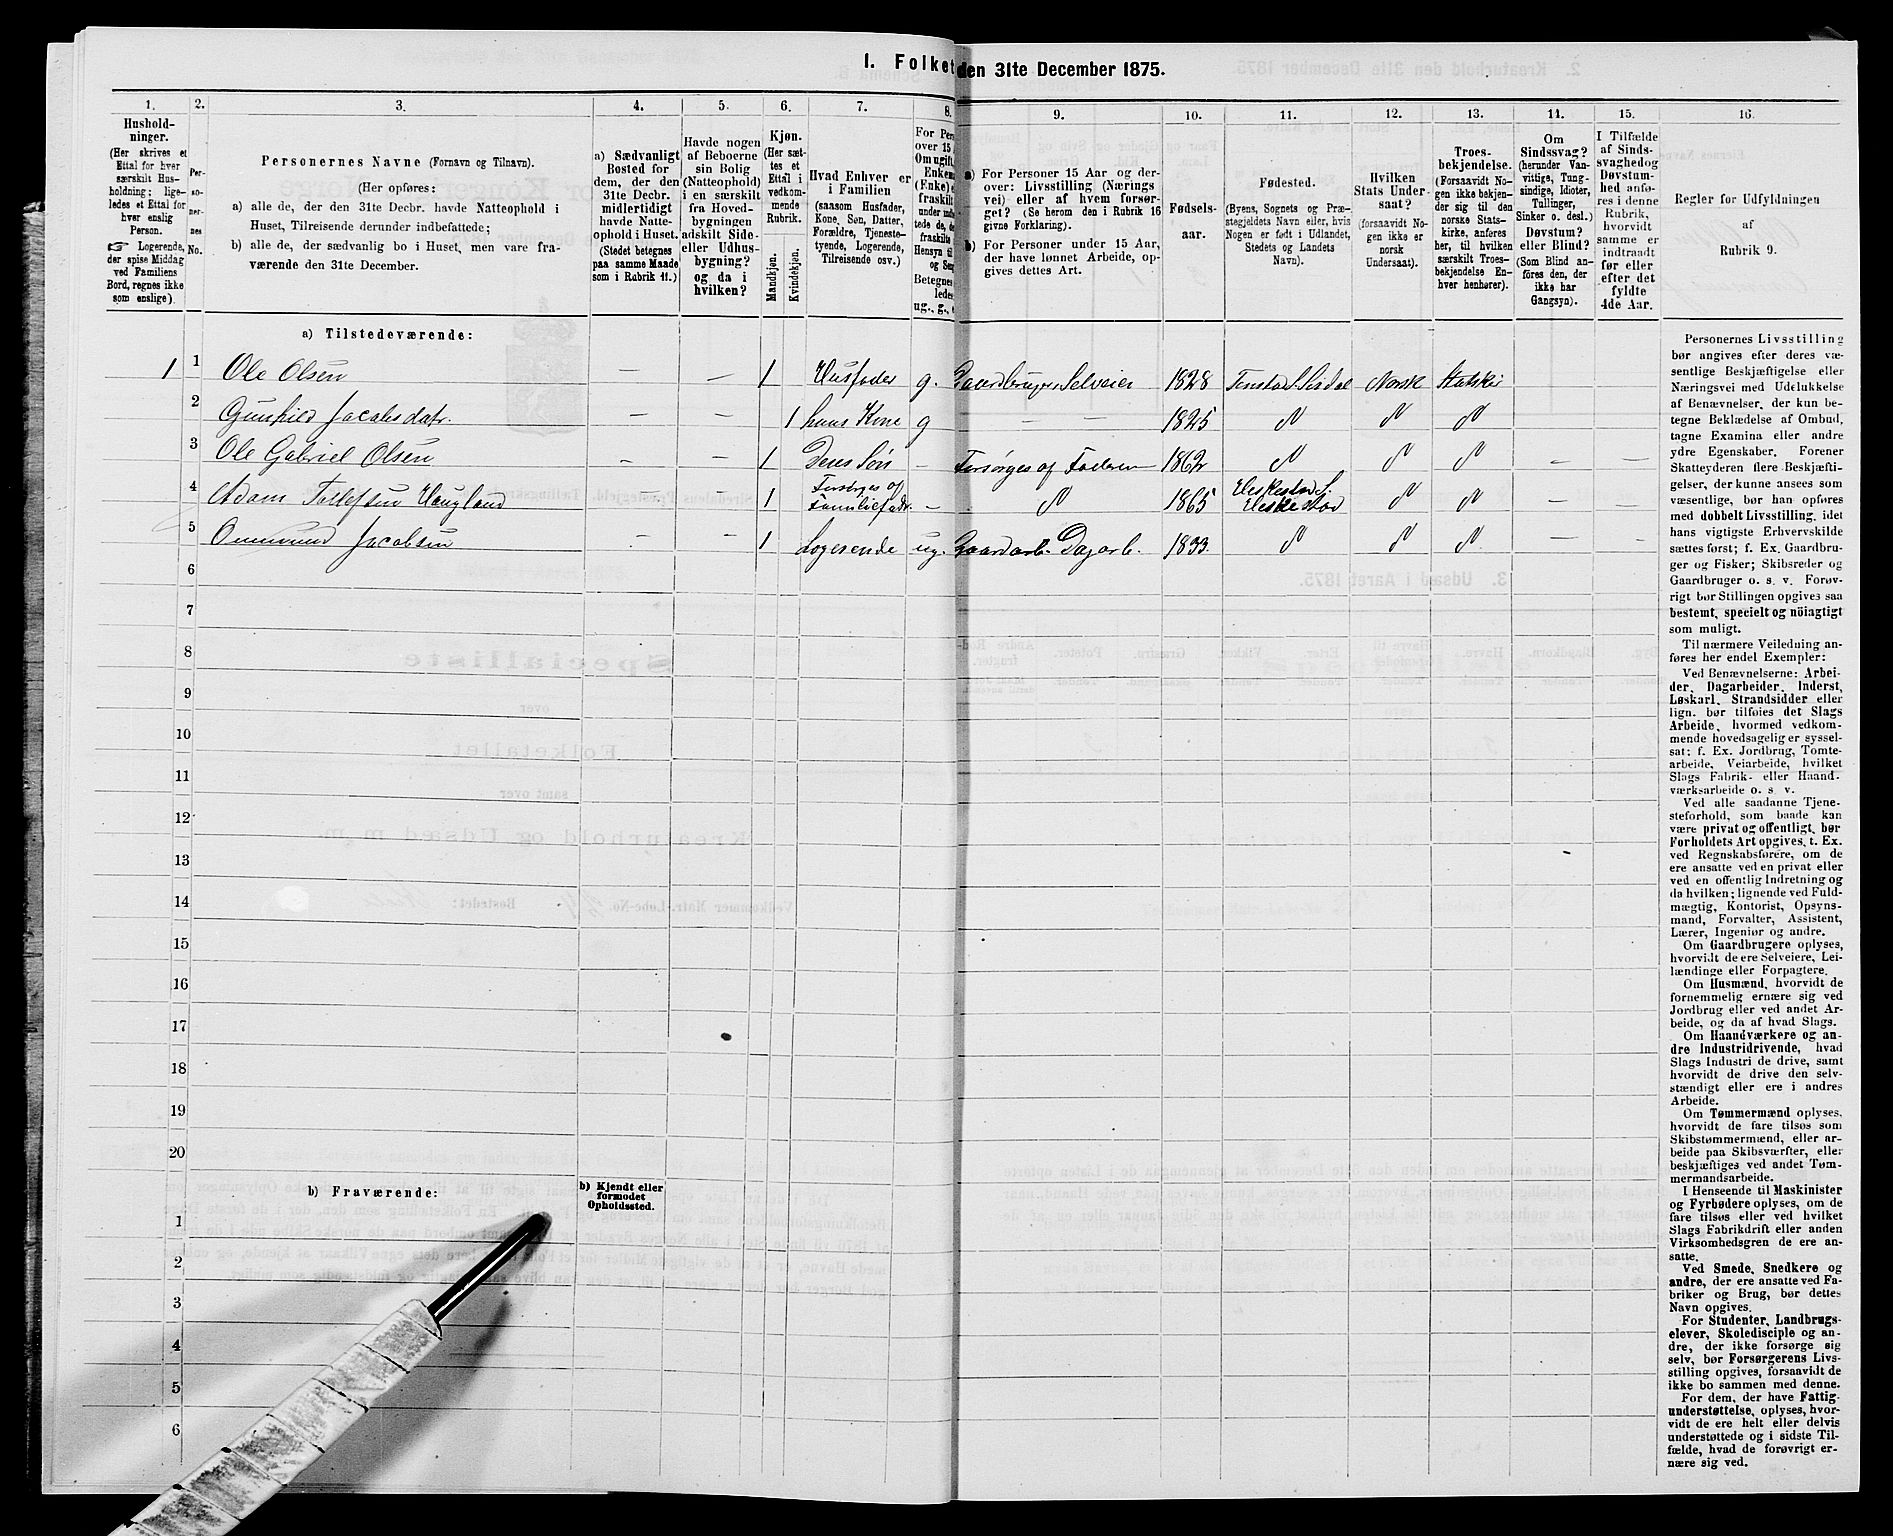 1. Folket
den 31te December 1875.
1.
2.
3.
4.
5.
6.
7.
8.
9.
10.
11.
12.
13.
14.
15.
16.
Hushold-
ninger.
(Her skrives et
Ettal for hver
særskilt Hus-
holdning; lige-
ledes et Ettal for
hver enslig
Person.
☞ Logerende,
der spise Middag
ved Familiens
Bord, regnes ikke
som enslige).
Per-
so-
ner-
nes
No.
Personernes Navne (Fornavn og Tilnavn).
(Her opføres:
a) alle de, der den 31te Decbr. havde Natteophold i
Huset, Tilreisende derunder indbefattede;
b) alle de, der sædvanlig bo i Huset, men vare fra-
værende den 31te December.
a) Sædvanligt
Bosted for
dem, der den
31te Decbr.
midlertidigt
havde Natte-
ophold i Huset.
(Stedet betegnes
paa samme Maade
som i Rubrik 11.)
Havde nogen
af Beboerne
sin Bolig
(Natteophold)
i en særskilt
fra Hoved-
bygningen
adskilt Side-
eller Udhus-
bygning?
og da i
hvilken?
Kjøn.
(Her sæt-
tes et
Ettal i
vedkom-
mende
Rubrik.
Mandkjøn.
Kvindekjøn.
Hvad Enhver er
i Familien
(saasom Husfader,
Kone, Søn, Datter,
Forældre, Tjeneste-
tyende, Logerende,
Tilreisende osv.)
For Pers
over 15
Om ugift,
Enkem
(Enke) e
fraskilt
Hensyn til
og Sen
Betegnes
ledes
ug., g.,
a) For Personer 15 Aar og der-
over: Livsstilling (Nærings
vei) eller af hvem forsør-
get? (Se herom den i Rubrik 16
givne Forklaring).
b) For Personer under 15 Aar,
der have lønnet Arbeide, op-
gives dettes Art.
Fødsels-
aar.
Fødested.
(Byens, Sognets og Præ-
stegjeldets Navn eller, hvis
Nogen er født i Udlandet,
Stedets og Landets
Navn).
Hvilken
Stats Under-
saat?
(forsaavidt No-
gen ikke er
norsk
Undersaat).
Troes-
bekjendelse.
(Forsaavidt No-
gen ikke bekjen-
der sig til den
norske Stats-
kirke, anføres
her, til hvilken
særskilt Troes-
bekjendelse En-
hver henhører).
Om
Sindssvag?
(herunder Van-
vittige, Tung-
sindige, Idioter,
Tullinger,
Sinker o. desl.)
Døvstum?
eller Blind?
(Som Blind an-
føres den, der
ikke har
Gangsyn).
I Tilfælde
af Sinds-
svaghed og
Døvstum-
hed anfø-
res i denne
Rubrik,
hvorvidt
samme er
indtraadt
før eller
efter det
fyldte
4de Aar.
Regler for Udfyldningen
af
Rubrik 9.
a) Tilstedeværende:
1 1 Ole Olsen — 1 Husfader g. Gaardbruger Selveier 1828 Norsk Statskir
2 Gunhild Jacobsdatr. — — 1 hans Kone g — — 1825 " " "
3 Ole Gabriel Olsen — — 1 Deres Søn — Forsørges af Faderen 1862 " " " — —
4 Adam Tollefsen Haugland — — 1 Forsørges af Familiefadr. — " 1865 Heskestad S. Heskestad " " —
5 Ommund Jacobsen — — 1 Logerende ug. Gaardarb. Dagarb. 1833 " " " — —
6
7
8
9
10
11
12
13
14
15
16
17
18
19
20
b) Fraværende:
b) Kjendt eller
formodet
Opholdssted.
1
2
3
4
5
6
Personernes Livsstilling
bør angives efter deres væ-
sentlige Beskjæftigelse eller
Næringsvei med Udelukkelse
af Benævnelser, der kun be-
tegne Beklædelse af Ombud,
tagne Examina eller andre
ydre Egenskaber. Forener
Skatteyderen flere Beskjæfti-
gelser, der kunne ansees som
væsentlige, bør han opføres
med dobbelt Livsstilling, idet
hans vigtigste Erhvervskilde
sættes først; f. Ex. Gaardbru-
ger og Fisker; Skibsreder og
Gaardbruger o. s. v. Forøv-
rigt bør Stillingen opgives saa
bestemt, specielt og nöiagtigt
som muligt.
Til nærmere Veiledning an-
føres her endel Exempler:
Ved Benævnelserne: Arbei-
der, Dagarbeider, Inderst,
Løskarl, Strandsidder eller
lign. bør tilføies det Slags
Arbeide, hvormed vedkom-
mende hovedsagelig er syssel-
sat; f. Ex. Jordbrug, Tomte-
arbeide, Veiarbeide, hvilket
Slags Fabrik- eller Haand-
værksarbeide o. s. v.
Ved alle saadanne Tjene-
steforhold, som baade kan
være privat og offentligt, bør
Forholdets Art opgives, t. Ex.
ved Regnskabsførere, om de
ere ansatte ved en privat eller
ved en offentlig Indretning og
da hvilken; lignende ved Fuld-
mægtig, Kontorist, Opsyns-
mand, Forvalter, Assistent,
Lærer, Ingeniør og andre.
Om Gaardbrugere oplyses,
hvorvidt de ere Selveiere, Lei-
lændinge eller Forpagtere.
Om Husmænd, hvorvidt de
fornemmelig ernære sig ved
Jordbrug eller ved andet Ar-
beide, og da af hvad Slags.
Om Haandværkere og an-
dre Industridrivende, hvad
Slags Industri de drive, samt
hvorvidt de drive den selv-
stændigt eller ere i andres
Arbeide.
Om Tømmermænd oplyses,
hvorvidt de fare tilsøs som
Skibstømmermænd, eller ar-
beide paa Skibsværfter, eller
beskjæftiges ved andet Tøm-
mermandsarbeide.
I Henseende til Maskinister
og Fyrbødere oplyses, om de
fare tilsøs eller ved hvilket
Slags Fabrikdrift eller anden
Virksomhedsgren de ere an-
satte.
Ved Smede, Snedkere og
andre, der ere ansatte ved Fa-
briker og Brug, bør dettes
Navn opgives.
For Studenter, Landbrugs-
elever, Skoledisciple og an-
dre, der ikke forsørge sig
selv, bør Forsørgerens Livs-
stilling opgives, forsaavidt de
ikke bo sammen med denne.
For dem, der have Fattig-
understøttelse, oplyses, hvor-
vidt de ere helt eller delvis
understøttede og i sidste Til-
fælde, hvad de forøvrigt er-
nære sig ved.